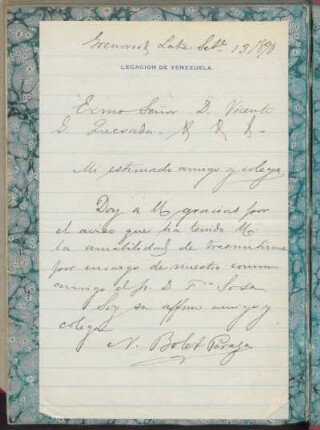 Greenwood Lake Sete 13/890
LEGACION DE VENEZUELA.
Exmo Señor D. Vicente
G. Quesada - & & &.
Mi estimado amigo y colega
Doy a U gracias por
el aviso que ha tenido U
la amabilidad de trasmitirme
por encargo de nuestro comun
amigo el Sr. D. Fco Sosa.
Soy su affmo amigo y
colega
N. Bolet Peraza